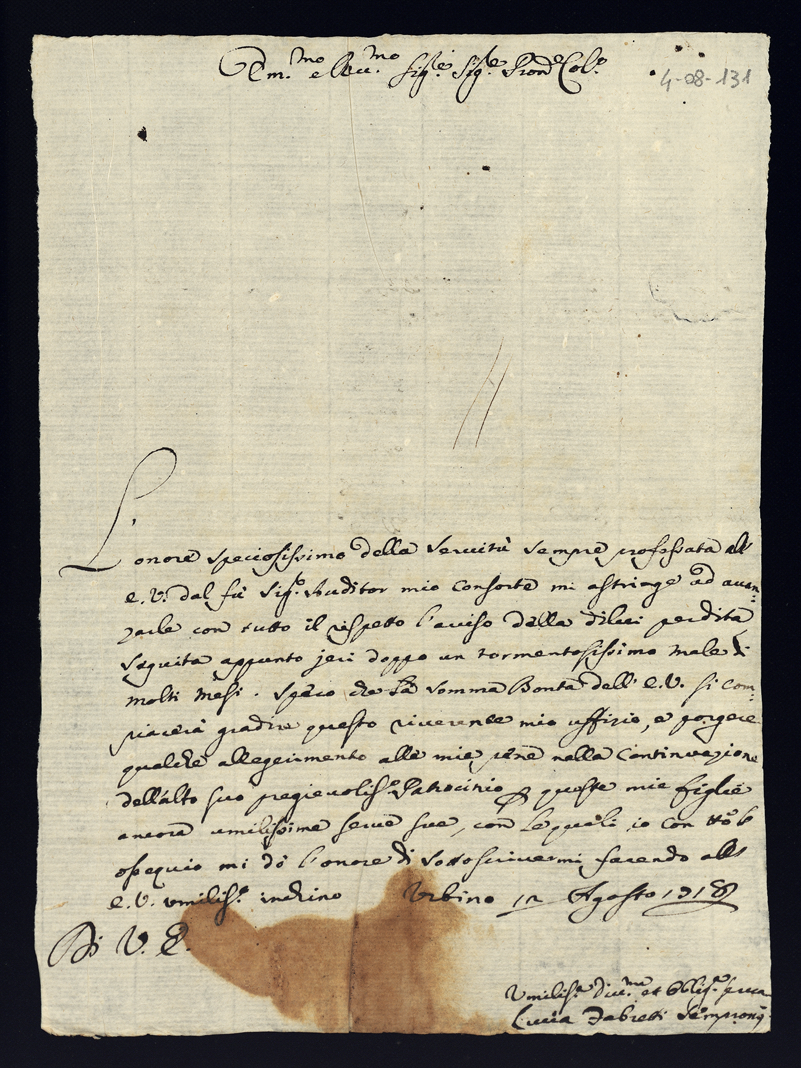 Em.mo e Rev.mo Sig.e Sig.e Pron.e Col.o
4-08-131
L'onore speciosissimo della servitù sempre professata all'
E.V. dal fù Sig.r Auditor mio Consorte mi astringe ad avan=
zarle con tutto il rispetto l'avviso della dilui perdita
seguita appunto jeri doppo un tormentosissimo male di
molti mesi. Spero che la somma Bontà dell'E.V. si com=
piacerà gradire questo riverente mio uffizio, e porgere
qualche allegerimento alle mie pene nella Continuazione
dell'alto suo pregievoliss.o Patrocinio queste mie figlie
ancora umilissime serve sue, con le quali io con tt.o l'
ossequio mi dò l'onore di sottoscrivermi facendo all'
E.V. umiliss.o inchino Urbino 12 Agosto
Di V. E.
Umiliss.a div.ma et Obblig.a serva
Lucia Fabretti Sempronj